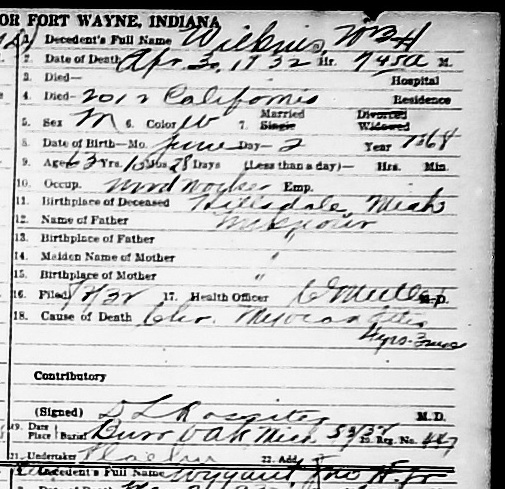 OR FORT WAYNE, INDIANA
1. Decedent's Full Name Wilkins, Wm H
2. Date of Death Apr. 30 1932 Hr. 745a M.
3. Died— Hospital
4. Died— 2012 California Residence
5. Sex M 6. Color W 7. Married Single Divorced Widowed
8. Date of Birth—Mo. June Day— 2 Year 1868
9. Age 63 Yrs. 10 Mos 28 Days (Less than a day)— Hrs. Min.
10. Occup. Wood Worker Emp.
11. Birthplace of Deceased Hillsdale, Mich
12. Name of Father
13. Birthplace of Father "
14. Maiden Name of Mother "
15. Birthplace of Mother "
16. Filed 17. Health Officer M.D.
18. Cause of Death Chr. Myocarditis
4 yrs.
Contributory
(Signed) M.D.
19. Date Place Burial Burr Oak Mich 5 3/32 20. Reg. No. 447
21. Undertaker 22. Add
1. Decedent's Full Name Wyant Jno H. Jr
2. Date of Death